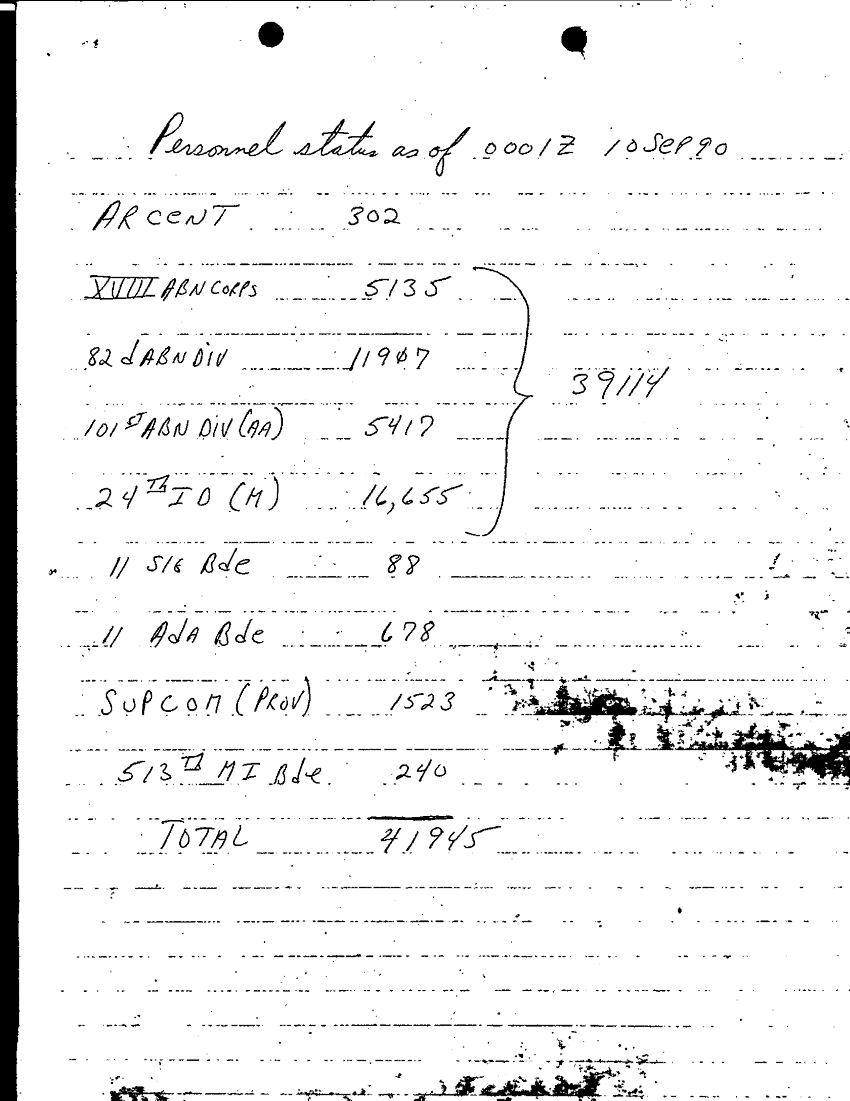 Personnel status as of 0001Z 10 SEP 90
ARCENT 302
XVIII ABN CORPS 5135
82d ABN DIV 11907
39114
101ST ABN DIV (AA) 5417
24TH ID (M) 16,655
11 SIG Bde 88
11 AdA Bde 678
SUPCOM (PROV) 1523
513TH MI Bde 240
TOTAL 41945